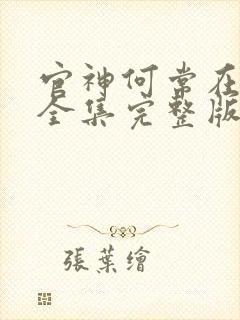 官神何常在
全集完整版
張葉繪